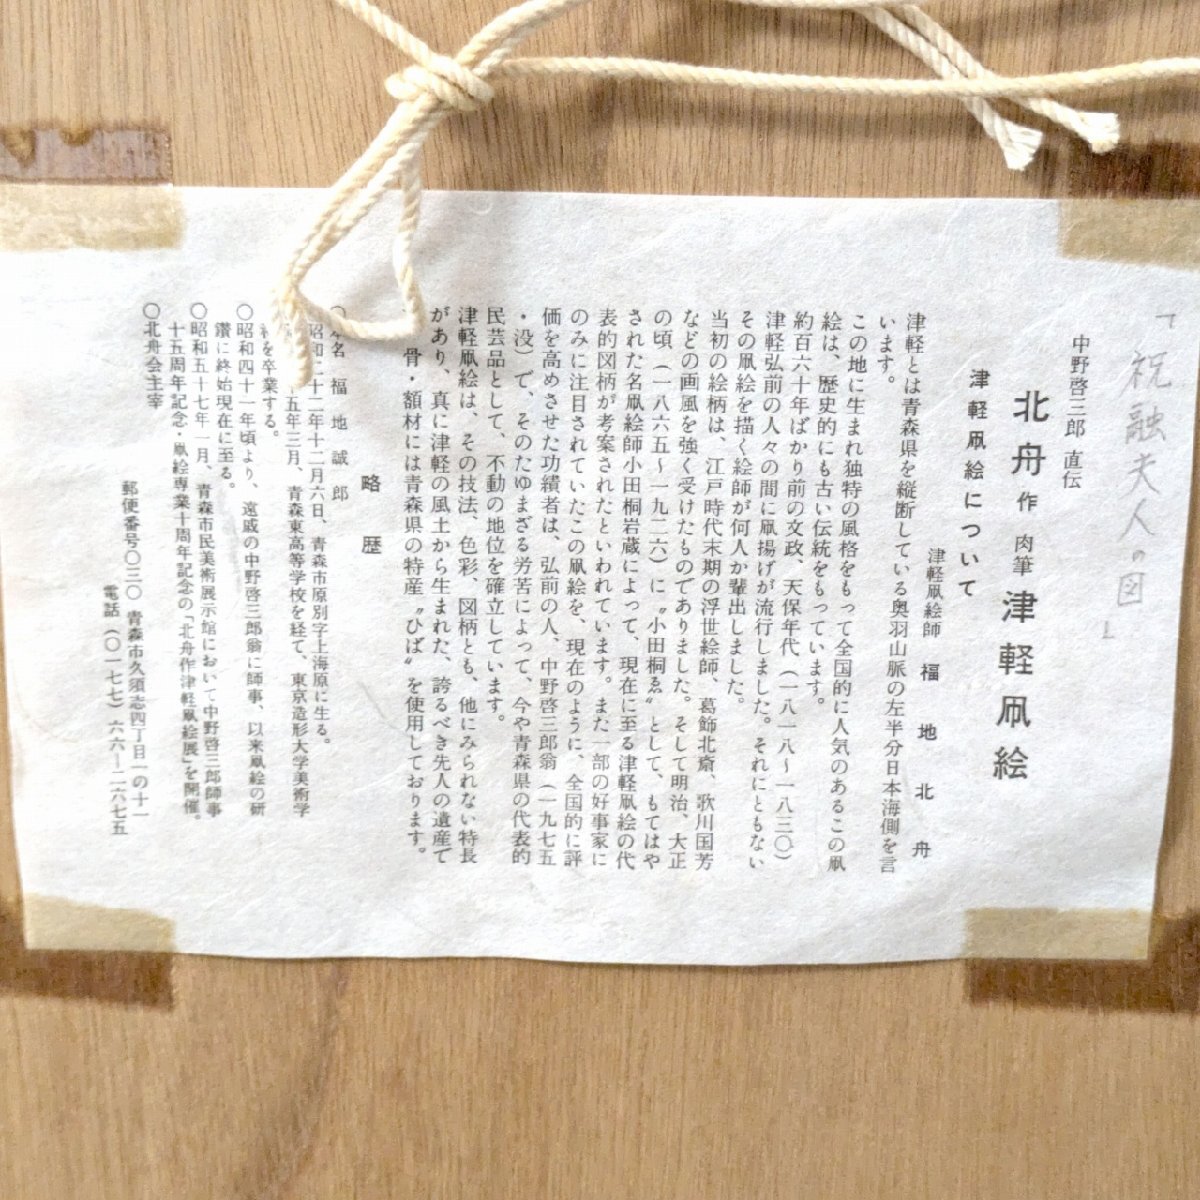 「祝融夫人の図」
中野啓三郎 直伝
北舟 作 肉筆 津軽凧絵
津軽凧絵について
津軽凧絵師 福地北舟
津軽とは青森県を縦断している奥羽山脈の左半分日本海側を言
います。
この地に生まれ独特の風格をもって全国的に人気のあるこの凧
絵は、歴史的にも古い伝統をもっています。
約百六十年ばかり前の文政、天保年代(一八一八〜一八三〇)
津軽弘前の人々の間に凧揚げが流行しました。それにともない
その凧絵を描く絵師が何人か輩出しました。
当初の絵柄は、江戸時代末期の浮世絵師、葛飾北斎、歌川国芳
などの画風を強く受けたものでありました。そして明治、大正
の頃(一八六五〜一九二六)に〝小田桐ゑ〟として、もてはや
された名凧絵師小田桐岩蔵によって、現在に至る津軽凧絵の代
表的図柄が考案されたといわれています。また一部の好事家に
のみに注目されていたこの凧絵を、現在のように、全国的に評
価を高めさせた功績者は、弘前の人、中野啓三郎翁(一九七五
・没)で、そのたゆまざる労苦によって、今や青森県の代表的
民芸品として、不動の地位を確立しています。
津軽凧絵は、その技法、色彩、図柄とも、他にみられない特長
があり、真に津軽の風土から生まれた、誇るべき先人の遺産で
骨・額材には青森県の特産〝ひば〟を使用しております。
略歴
〇本名 福地誠郎
昭和二十二年十二月六日、青森市原別字上海原に生る。
五年三月、青森東高等学校を経て、東京造形大学美術学
を卒業する。
〇昭和四十一年頃より、遠戚の中野啓三郎翁に師事、以来凧絵の研
鑽に終始現在に至る。
〇昭和五十七年一月、青森市民美術展示館において中野啓三郎師事
十五周年記念・凧絵専業十周年記念の「北舟作津軽凧絵展」を開催。
〇北舟会主宰
郵便番号〇三〇 青森市久須志四丁目一の十一
電話(〇一七七)六六―二六七五